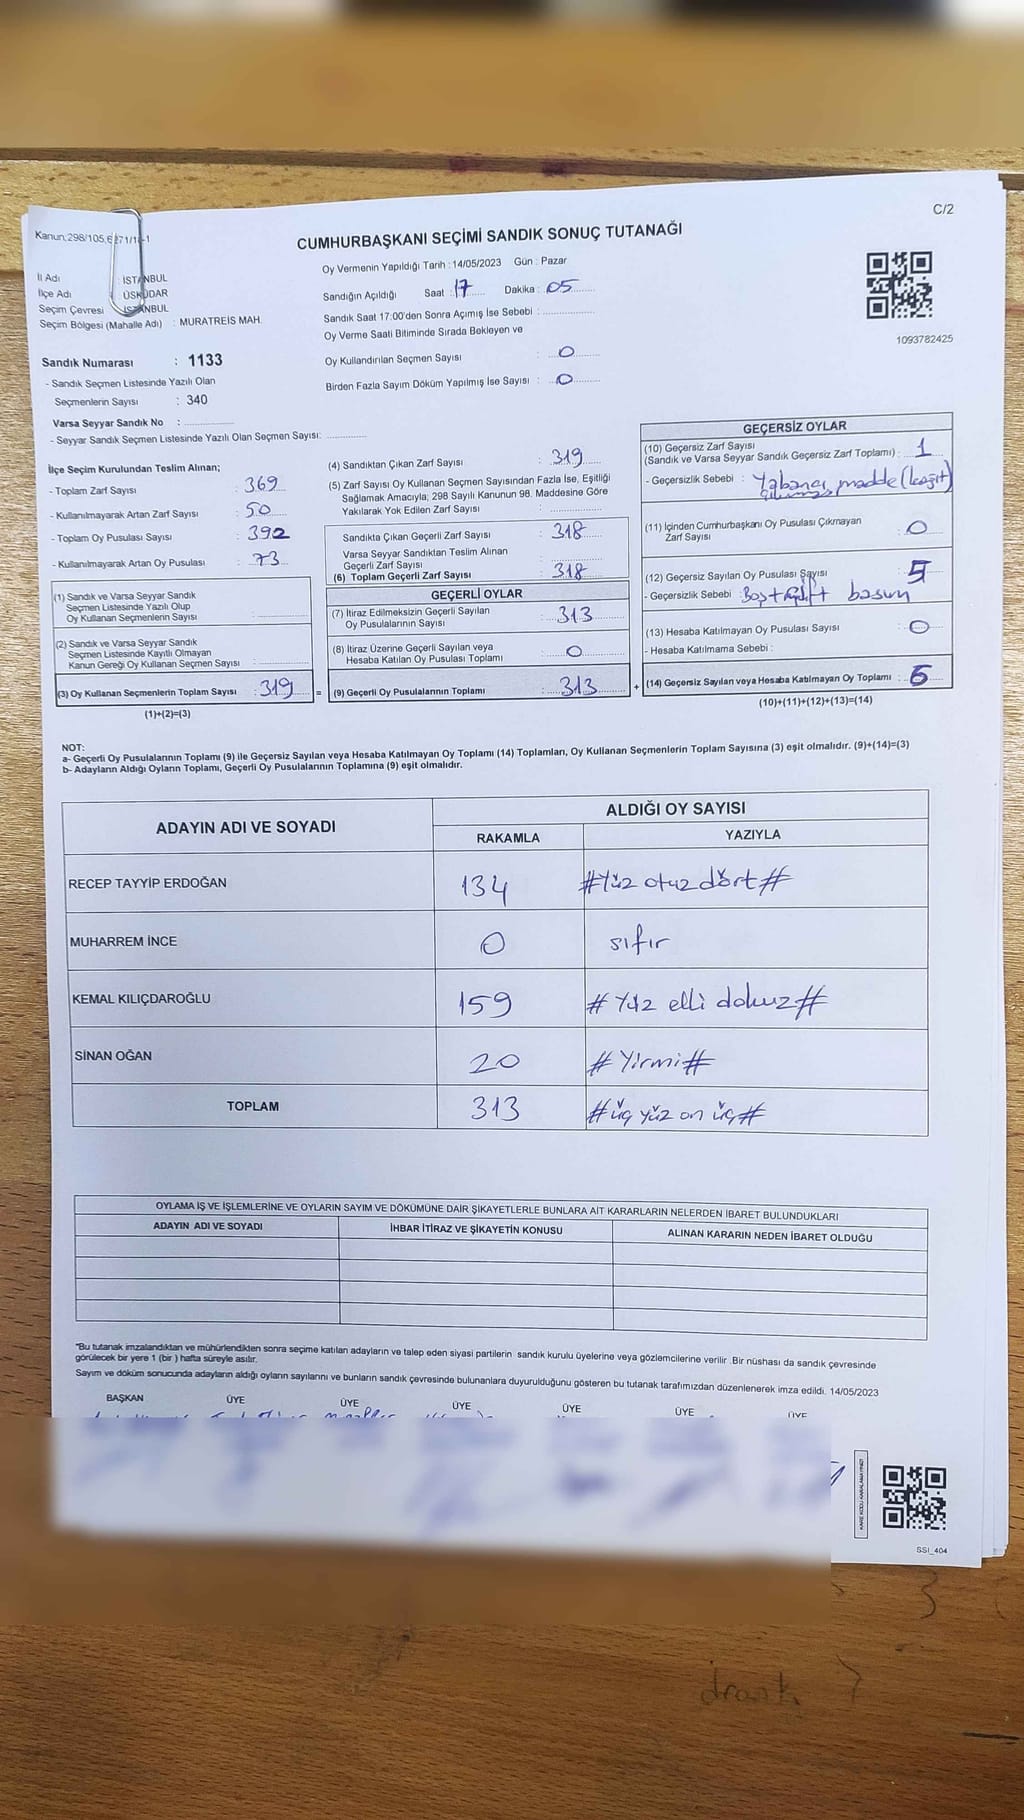 C/2
Kanun;298/105,6271/18-1
CUMHURBAŞKANI SEÇİMİ SANDIK SONUÇ TUTANAĞI
İl Adı : İSTANBUL
İlçe Adı : ÜSKÜDAR
Seçim Çevresi : İSTANBUL
Seçim Bölgesi (Mahalle Adı) : MURATREİS MAH.
Oy Vermenin Yapıldığı Tarih : 14/05/2023 Gün : Pazar
Sandığın Açıldığı Saat : 17 Dakika : 05
Sandık Saat 17:00'den Sonra Açımış İse Sebebi :
Oy Verme Saati Bitiminde Sırada Bekleyen ve
Oy Kullandırılan Seçmen Sayısı : 0
Birden Fazla Sayım Döküm Yapılmış İse Sayısı : 0
1093782425
Sandık Numarası : 1133
- Sandık Seçmen Listesinde Yazılı Olan
Seçmenlerin Sayısı : 340
Varsa Seyyar Sandık No :
- Seyyar Sandık Seçmen Listesinde Yazılı Olan Seçmen Sayısı:
İlçe Seçim Kurulundan Teslim Alınan;
- Toplam Zarf Sayısı : 369
- Kullanılmayarak Artan Zarf Sayısı : 50
- Toplam Oy Pusulası Sayısı : 392
- Kullanılmayarak Artan Oy Pusulası : 73
(1) Sandık ve Varsa Seyyar Sandık
Seçmen Listesinde Yazılı Olup
Oy Kullanan Seçmenlerin Sayısı :
(2) Sandık ve Varsa Seyyar Sandık
Seçmen Listesinde Kayıtlı Olmayan
Kanun Gereği Oy Kullanan Seçmen Sayısı :
(3) Oy Kullanan Seçmenlerin Toplam Sayısı : 319 =
(1)+(2)=(3)
(4) Sandıktan Çıkan Zarf Sayısı : 319
(5) Zarf Sayısı Oy Kullanan Seçmen Sayısından Fazla İse, Eşitliği
Sağlamak Amacıyla; 298 Sayılı Kanunun 98. Maddesine Göre
Yakılarak Yok Edilen Zarf Sayısı :
Sandıkta Çıkan Geçerli Zarf Sayısı : 318
Varsa Seyyar Sandıktan Teslim Alınan
Geçerli Zarf Sayısı :
(6) Toplam Geçerli Zarf Sayısı : 318
GEÇERLİ OYLAR
(7) İtiraz Edilmeksizin Geçerli Sayılan
Oy Pusulalarının Sayısı : 313
(8) İtiraz Üzerine Geçerli Sayılan veya
Hesaba Katılan Oy Pusulası Toplamı : 0
(9) Geçerli Oy Pusulalarının Toplamı : 313 +
GEÇERSİZ OYLAR
(10) Geçersiz Zarf Sayısı
(Sandık ve Varsa Seyyar Sandık Geçersiz Zarf Toplamı) : 1
- Geçersizlik Sebebi : Yabancı madde (kağıt)
(11) İçinden Cumhurbaşkanı Oy Pusulası Çıkmayan
Zarf Sayısı : 0
(12) Geçersiz Sayılan Oy Pusulası Sayısı : 5
- Geçersizlik Sebebi : Boş+çift basım
(13) Hesaba Katılmayan Oy Pusulası Sayısı : 0
- Hesaba Katılmama Sebebi :
(14) Geçersiz Sayılan veya Hesaba Katılmayan Oy Toplamı : 6
(10)+(11)+(12)+(13)=(14)
NOT:
a- Geçerli Oy Pusulalarının Toplamı (9) ile Geçersiz Sayılan veya Hesaba Katılmayan Oy Toplamı (14) Toplamları, Oy Kullanan Seçmenlerin Toplam Sayısına (3) eşit olmalıdır. (9)+(14)=(3)
b- Adayların Aldığı Oyların Toplamı, Geçerli Oy Pusulalarının Toplamına (9) eşit olmalıdır.
ADAYIN ADI VE SOYADI
ALDIĞI OY SAYISI
RAKAMLA YAZIYLA
RECEP TAYYİP ERDOĞAN 134 #Yüz otuz dört#
MUHARREM İNCE 0 sıfır
KEMAL KILIÇDAROĞLU 159 # Yüz elli dokuz#
SİNAN OĞAN 20 # Yirmi#
TOPLAM 313 #üç yüz on üç#
OYLAMA İŞ VE İŞLEMLERİNE VE OYLARIN SAYIM VE DÖKÜMÜNE DAİR ŞİKAYETLERLE BUNLARA AİT KARARLARIN NELERDEN İBARET BULUNDUKLARI
ADAYIN ADI VE SOYADI İHBAR İTİRAZ VE ŞİKAYETİN KONUSU ALINAN KARARIN NEDEN İBARET OLDUĞU
*Bu tutanak imzalandıktan ve mühürlendikten sonra seçime katılan adayların ve talep eden siyasi partilerin sandık kurulu üyelerine veya gözlemcilerine verilir .Bir nüshası da sandık çevresinde
görülecek bir yere 1 (bir ) hafta süreyle asılır.
Sayım ve döküm sonucunda adayların aldığı oyların sayılarını ve bunların sandık çevresinde bulunanlara duyurulduğunu gösteren bu tutanak tarafımızdan düzenlenerek imza edildi. 14/05/2023
BAŞKAN ÜYE ÜYE ÜYE ÜYE ÜYE ÜYE
KARE KODU KARALAMAYINIZ!
SSİ_404